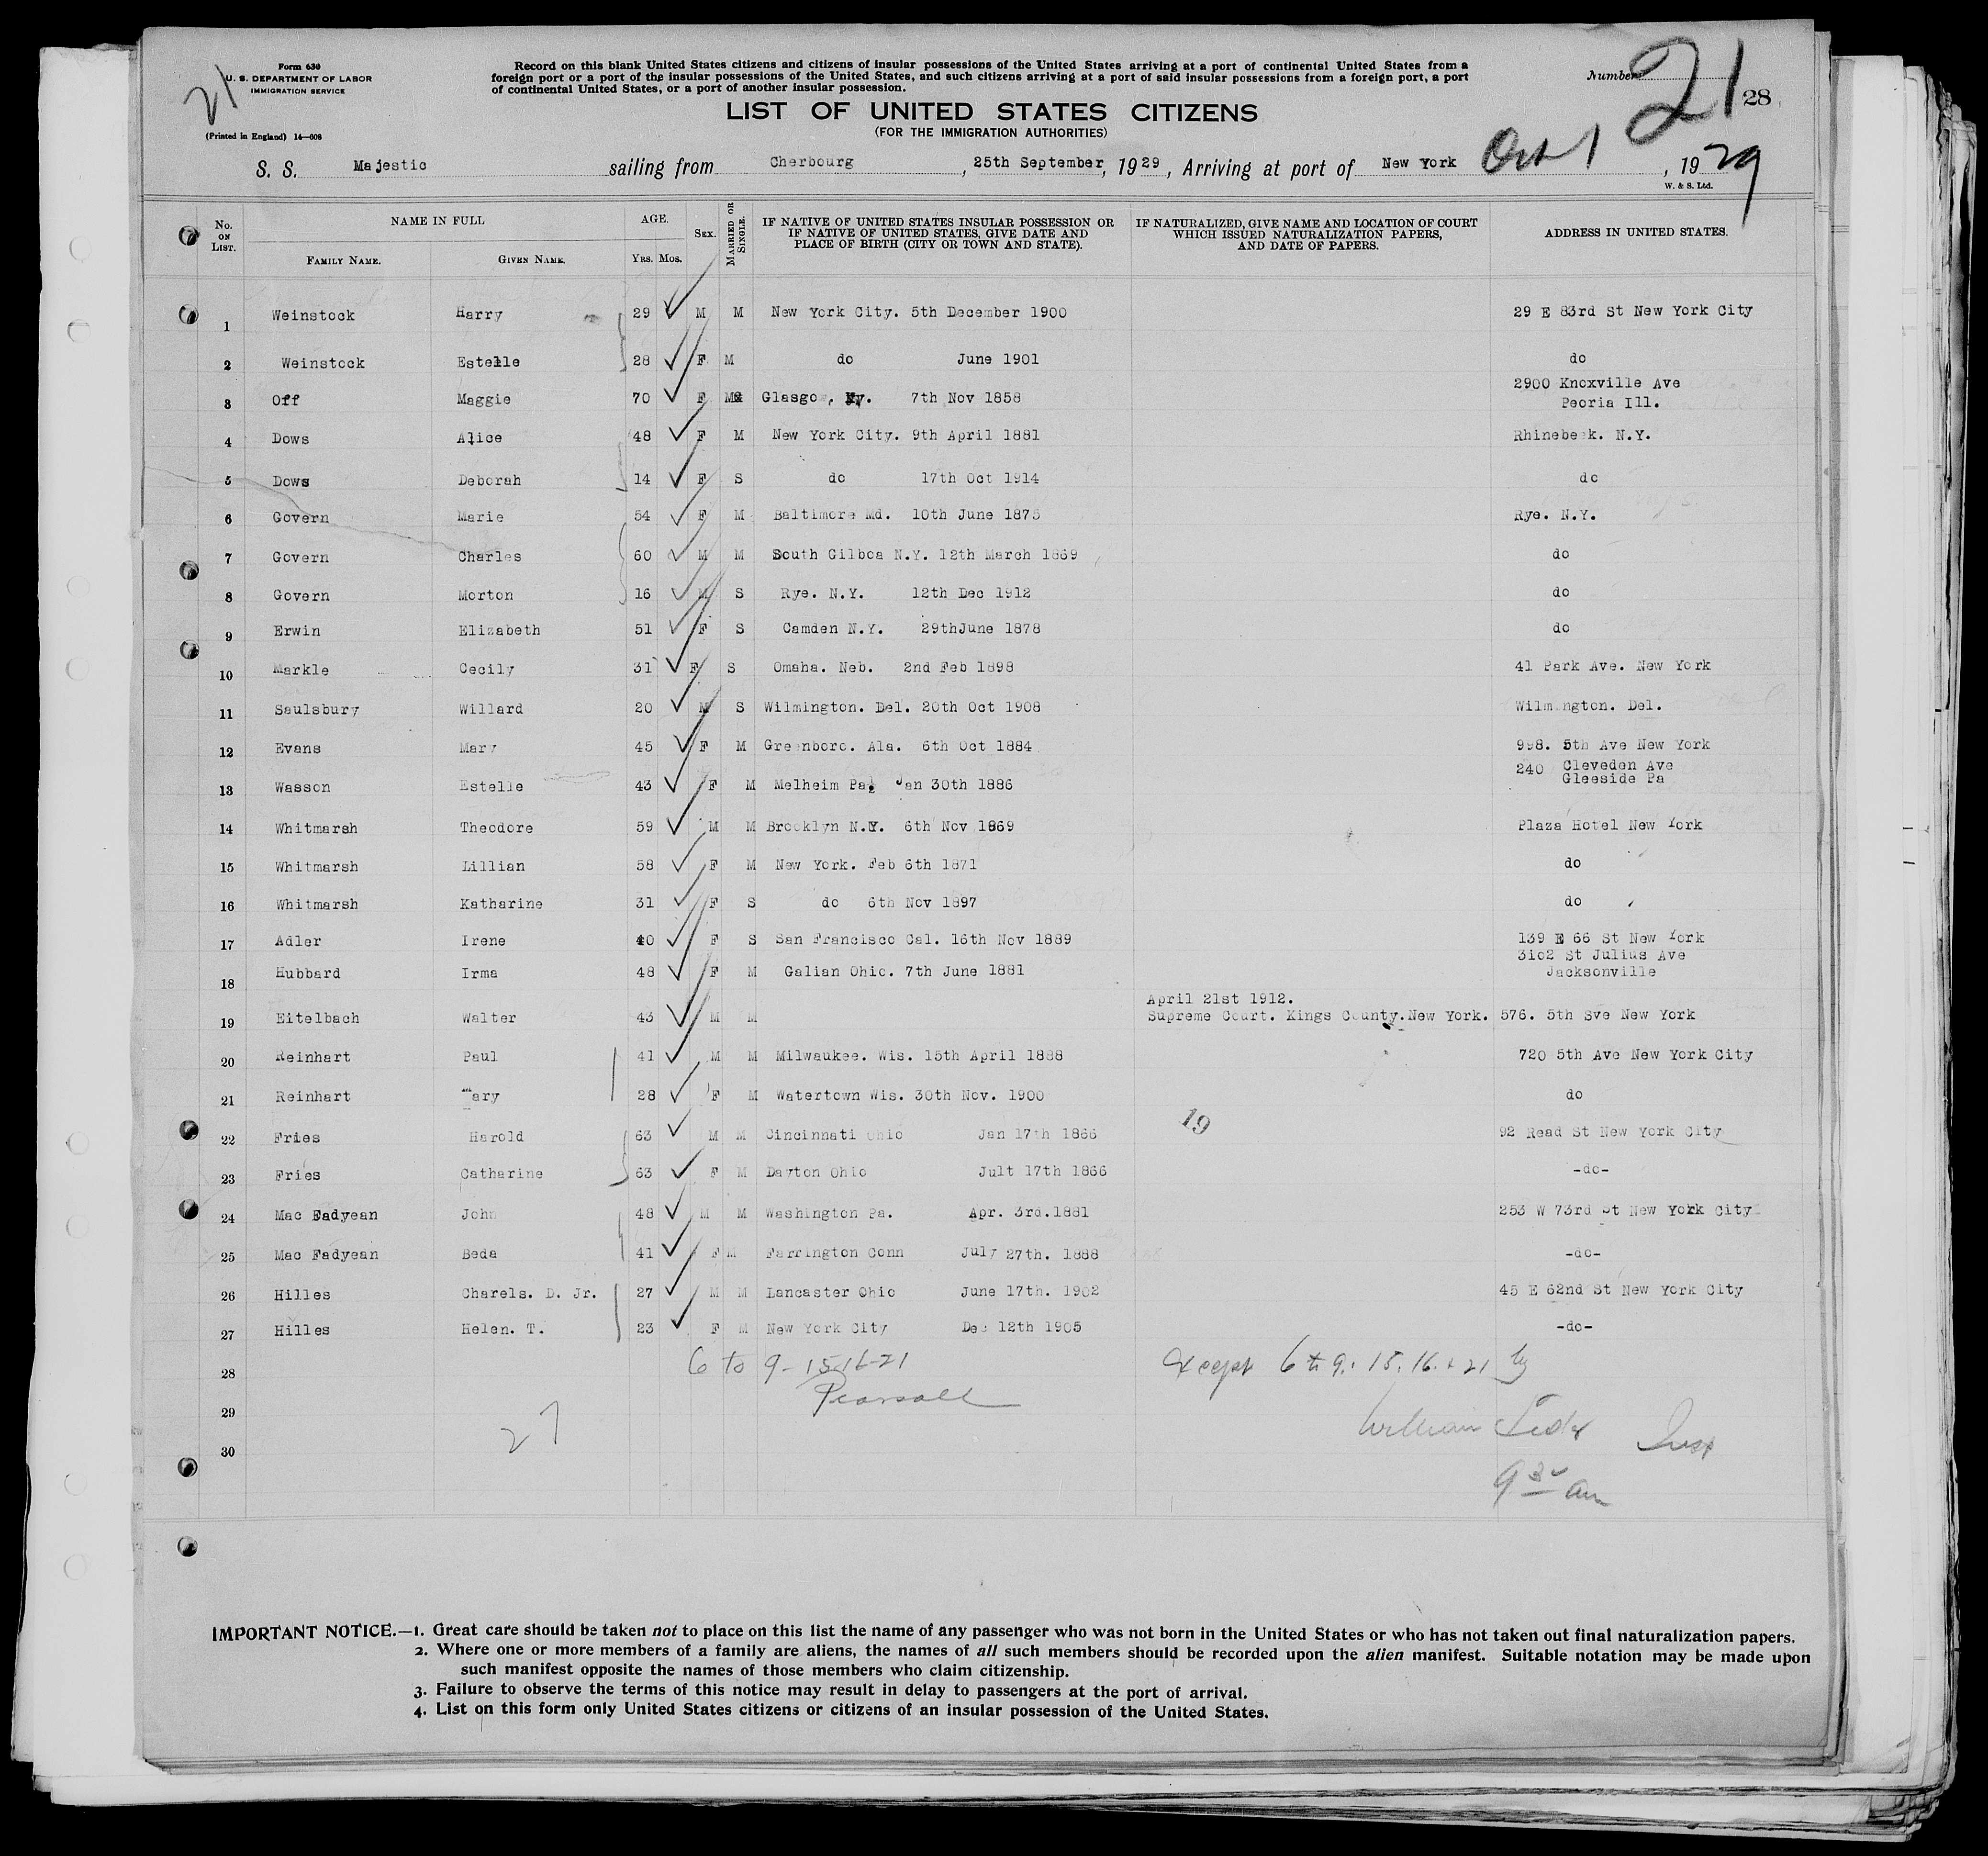 Form 630
U. S. DEPARTMENT OF LABOR
IMMIGRATION SERVICE
21
(Printed in England) 14—608
Record on this blank United States citizens and citizens of insular possessions of the United States arriving at a port of continental United States from a
foreign port or a port of the insular possessions of the United States, and such citizens arriving at a port of said insular possessions from a foreign port, a port
of continental United States, or a port of another insular possession.
Number 21 28
LIST OF UNITED STATES CITIZENS
(FOR THE IMMIGRATION AUTHORITIES)
S. S. Majestic sailing from Cherbourg, 25th September, 1929, Arriving at port of New York Oct 1, 1929
W. & S. Ltd.
No. ON LIST. NAME IN FULL AGE. SEX. MARRIED OR SINGLE. IF NATIVE OF UNITED STATES INSULAR POSSESSION OR IF NATIVE OF UNITED STATES, GIVE DATE AND PLACE OF BIRTH (CITY OR TOWN AND STATE). IF NATURALIZED, GIVE NAME AND LOCATION OF COURT WHICH ISSUED NATURALIZATION PAPERS, AND DATE OF PAPERS. ADDRESS IN UNITED STATES.
FAMILY NAME. GIVEN NAME. YRS. MOS.
1 Weinstock Harry 29 M M New York City. 5th December 1900 29 E 83rd St New York City
2 Weinstock Estelle 28 F M do June 1901 do
3 Off Maggie 70 F Glasgo, Ky. 7th Nov 1858 2900 Knoxville Ave Peoria Ill.
4 Dows Alice 48 F M New York City. 9th April 1881 Rhinebeck. N.Y.
5 Dows Deborah 14 F S do 17th Oct 1914 do
6 Govern Marie 54 F M Baltimore Md. 10th June 1875 Rye. N.Y.
7 Govern Charles 60 M M South Gilboa N.Y. 12th March 1869 do
8 Govern Morton 16 M S Rye. N.Y. 12th Dec 1912 do
9 Erwin Elizabeth 51 F S Camden N.Y. 29thJune 1878 do
10 Markle Cecily 31 F S Omaha. Neb. 2nd Feb 1898 41 Park Ave. New York
11 Saulsbury Willard 20 M S Wilmington. Del. 20th Oct 1908 Wilmington. Del.
12 Evans Mary 45 F M Greenboro. Ala. 6th Oct 1884 998. 5th Ave New York
13 Wasson Estelle 43 F M Melheim Pa. Jan 30th 1886 240 Cleveden Ave Gleeside Pa
14 Whitmarsh Theodore 59 M M Brooklyn N.Y. 6th Nov 1869 Plaza Hotel New York
15 Whitmarsh Lillian 58 F M New York. Feb 6th 1871 do
16 Whitmarsh Katharine 31 F S do 6th Nov 1897 do
17 Adler Irene 40 F S San Francisco Cal. 16th Nov 1889 139 E 66 St New York
18 Hubbard Irma 48 F M Galian Ohio. 7th June 1881 3102 St Julius Ave Jacksonville
19 Eitelbach Walter 43 M M April 21st 1912. Supreme Court. Kings County.New York. 576. 5th Sve New York
20 Reinhart Paul 41 M M Milwaukee. Wis. 15th April 1888 720 5th Ave New York City
21 Reinhart Mary 28 F M Watertown Wis. 30th Nov. 1900 do
22 Fries Harold 63 M M Cincinnati Ohio Jan 17th 1866 19 92 Read St New York City
23 Fries Catharine 63 F M Dayton Ohio Jult 17th 1866 -do-
24 Mac Fadyean John 48 M M Washington Pa. Apr. 3rd.1881 253 W 73rd St New York City
25 Mac Fadyean Beda 41 F M Farrington Conn July 27th. 1888 -do-
26 Hilles Charels. D. Jr. 27 M M Lancaster Ohio June 17th. 1902 45 E 62nd St New York City
27 Hilles Helen. T. 23 F M New York City Dec 12th 1905 -do-
28 6 to 9-15-16-21 Except 6 to 9. 15. 16. + 21 by
29 27 Pearsall William Insp
30 9 30 am
IMPORTANT NOTICE.—1. Great care should be taken not to place on this list the name of any passenger who was not born in the United States or who has not taken out final naturalization papers.
2. Where one or more members of a family are aliens, the names of all such members should be recorded upon the alien manifest. Suitable notation may be made upon
such manifest opposite the names of those members who claim citizenship.
3. Failure to observe the terms of this notice may result in delay to passengers at the port of arrival.
4. List on this form only United States citizens or citizens of an insular possession of the United States.